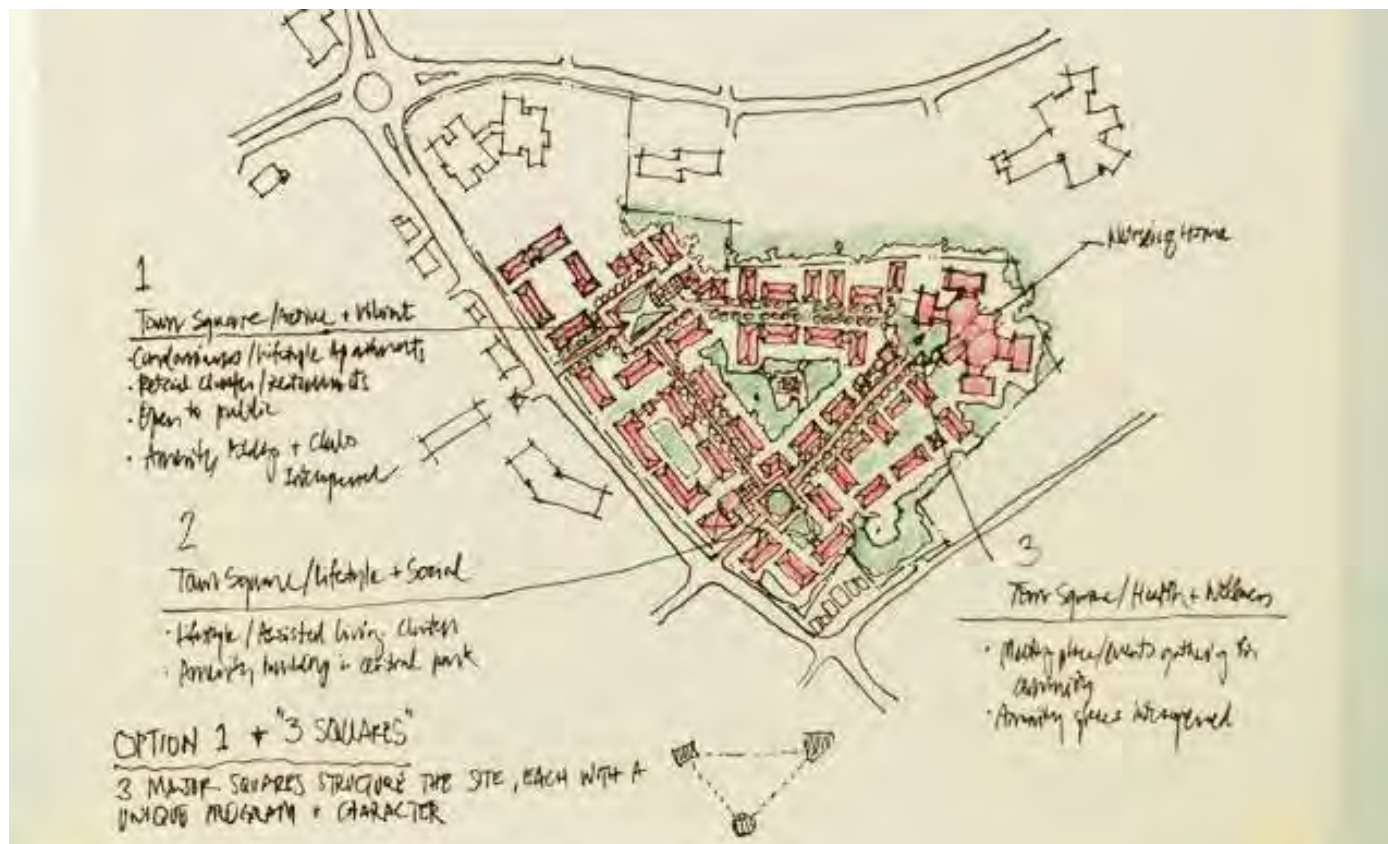 1
Town Square/Active + Vibrant
· Condominiums/Lifestyle Apartments
· Retail Cluster/Restaurants
· Open to public
· Amenity Bldg + Clubs
Interspersed
Nursing Home
2
Town Square/Lifestyle + Social
· Lifestyle/Assisted Living Cluster
· Amenity building in central park
3
Town Square/Health + Wellness
· Meeting place/events gathering for
community
· Amenity spaces interspersed
OPTION 1 + "3 SQUARES"
3 MAJOR SQUARES STRUCTURE THE SITE, EACH WITH A
UNIQUE PROGRAM + CHARACTER